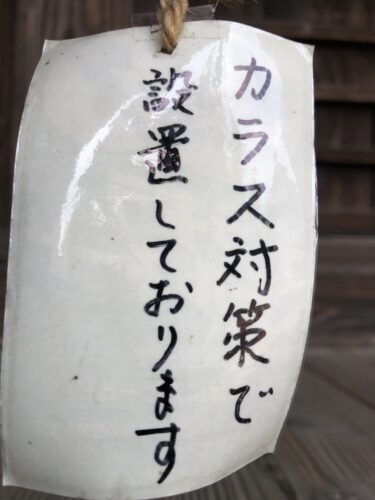 カラス対策で
設置しております